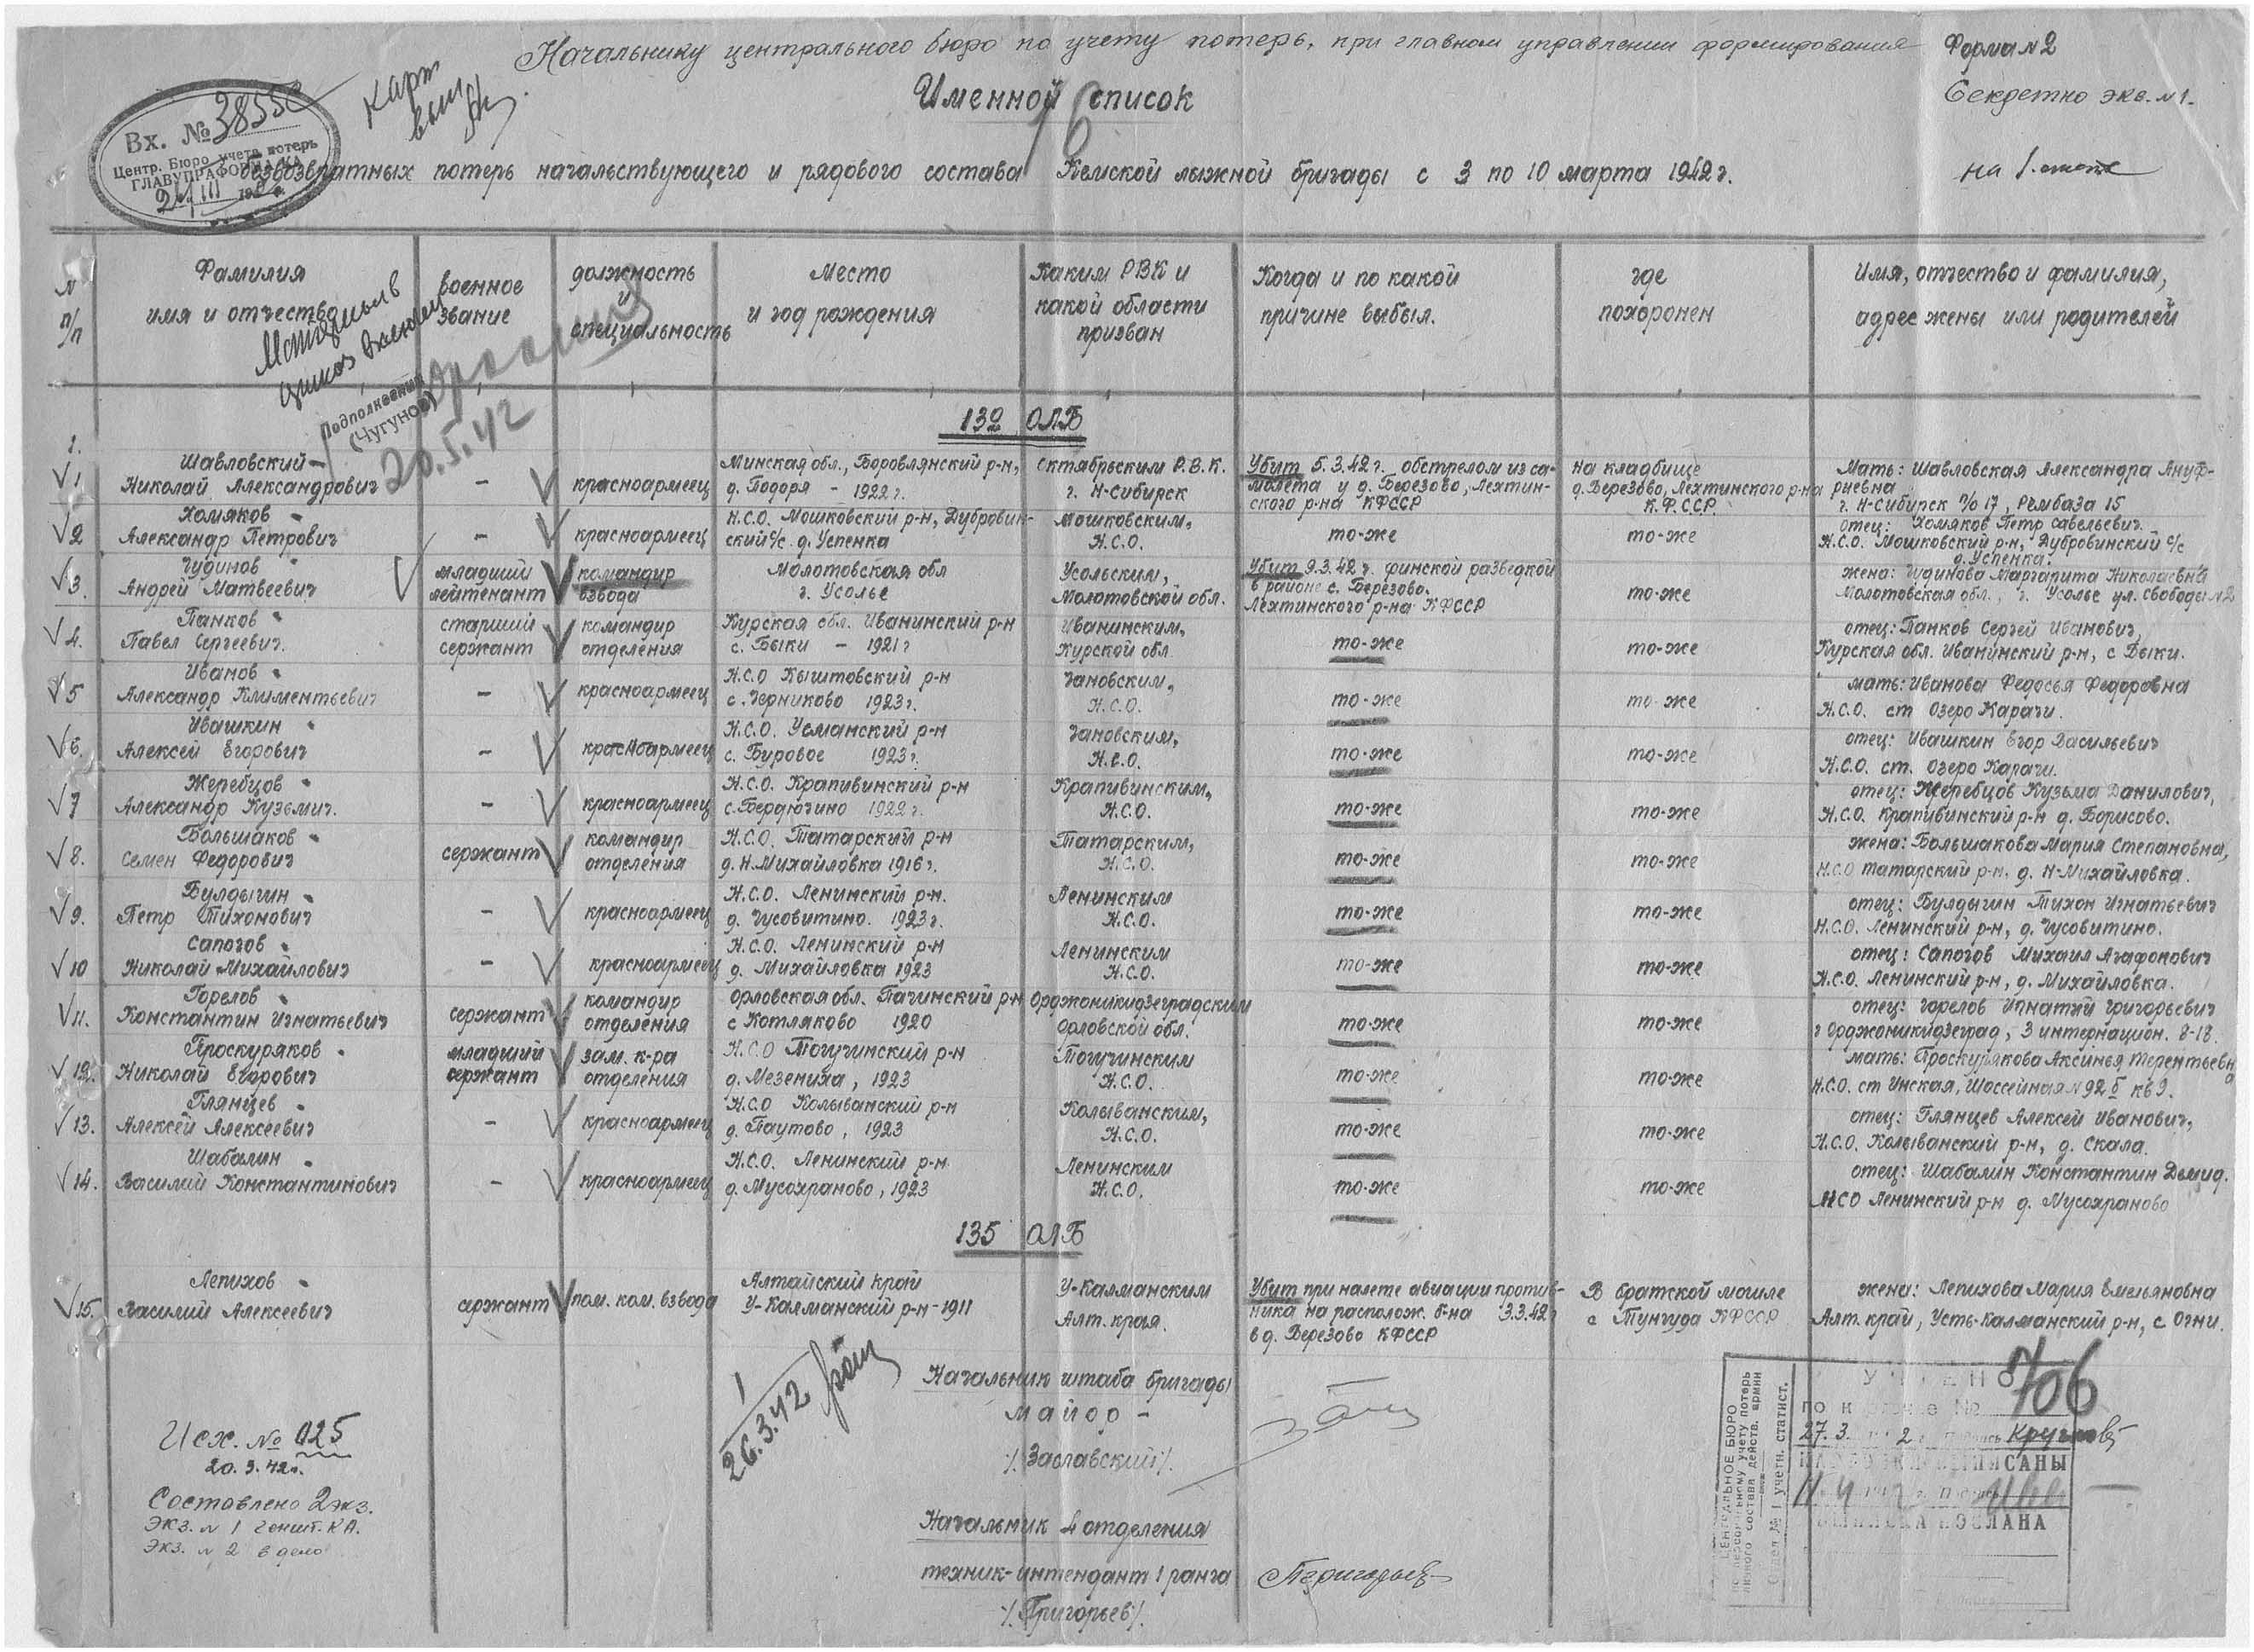 Начальнику центрального бюро по учету потерь, при главном управлении формирования
Форма №2
Секретно экз. №1.
на 1. листе
Карт
вып
Вх. № 38550
Центр. Бюро учета потерь
ГЛАВУПРАФОРМА КА
Именной список
безвозвратных потерь начальствующего и рядового состава Кемской лыжной бригады с 3 по 10 марта 1942 г.
№ п/п
Фамилия имя и отчество
военное звание
должность и специальность
Место и год рождения
Каким РВК и какой области призван
Когда и по какой причине выбыл.
где похоронен
Имя, отчество и фамилия, адрес жены или родителей
Подполковник
(Чугунов)
20.5.42
139 ОЛБ
1.
1 Шавловский Николай Александрович - красноармеец Минская обл., Боровлянский р-н, д. Подоря - 1922 г. Октябрьским Р.В.К. г. Н-Сибирск Убит 5.3.42 г. обстрелом из самолета у д. Березово, Лехтинского р-на КФССР на кладбище д. Березово, Лехтинского р-на К.Ф.ССР. Мать: Шавловская Александра Ануфриевна г. Н-Сибирск п/о 17, Рембаза 15
2 Хомяков Александр Петрович - красноармеец Н.С.О. Мошковский р-н, Дубровинский с/с д. Успенка Мошковским, Н.С.О. то-же то-же отец: Хомяков Петр Савельевич. Н.С.О. Мошковский р-н, Дубровинский с/с д. Успенка.
3. Чудинов Андрей Матвеевич младший лейтенант командир взвода Молотовская обл г. Усолье Усольским, Молотовской обл. Убит 9.3.42 г. финской разведкой в районе с. Березово. Лехтинского р-на КФССР то-же жена: Чудинова Маргарита Николаевна Молотовская обл., г. Усолье ул. Свободы №2
4. Панков Павел Сергеевич. старший сержант командир отделения Курская обл. Иванинский р-н с. Быки - 1921 г Иванинским, Курской обл то-же то-же отец: Панков Сергей Иванович, Курская обл. Иванинский р-н, с Быки.
5 Иванов Александр Климентьевич - красноармеец Н.С.О Кыштовский р-н с. Черниково 1923 г. Чановским, Н.С.О. то-же то-же мать: Иванова Федосья Федоровна Н.С.О. ст Озеро Карачи.
6. Ивашкин Алексей Егорович - красноармеец Н.С.О. Усманский р-н с. Буровое 1923 г. Чановским, Н.С.О. то-же то-же отец: Ивашкин Егор Васильевич Н.С.О. ст. Озеро Карачи.
7 Жеребцов Александр Кузьмич. - красноармеец Н.С.О. Крапивинский р-н с. Бердюгино 1922 г. Крапивинским, Н.С.О. то-же то-же отец: Жеребцов Кузьма Данилович, Н.С.О. Крапивинский р-н д. Борисово.
8. Большаков Семен Федорович сержант командир отделения Н.С.О. Татарский р-н д. Н.Михайловка 1916 г. Татарским, Н.С.О. то-же то-же жена: Большакова Мария Степановна, Н.С.О татарский р-н. д. Н-Михайловка.
9. Булдыгин Петр Тихонович - красноармеец Н.С.О. Ленинский р-н. д. Чусовитино. 1923 г. Ленинским Н.С.О. то-же то-же отец: Булдыгин Тихон Игнатьевич Н.С.О. Ленинский р-н, д. Чусовитино.
10 Сапогов Николай Михайлович - красноармеец Н.С.О. Ленинский р-н д. Михайловка 1923 Ленинским Н.С.О. то-же то-же отец: Сапогов Михаил Агафонович Н.С.О. Ленинский р-н, д. Михайловка.
11. Горелов Константин Игнатьевич сержант командир отделения Орловская обл. Пачинский р-н с Котляково 1920 Орджоникидзеградским Орловской обл. то-же то-же отец: Горелов Игнатий Григорьевич г Орджоникидзеград, 3 интернацион. 8-18.
12. Проскуряков Николай Егорович младший сержант зам. к-ра отделения Н.С.О Тогучинский р-н д. Мезениха, 1923 Тогучинским Н.С.О. то-же то-же мать: Проскурякова Аксинья Терентьевна Н.С.О. ст Инская, Шоссейная №92 б кв 9.
13. Глянцев Алексей Алексеевич - красноармеец Н.С.О Колыванский р-н д. Паутово, 1923 Колыванским, Н.С.О. то-же то-же отец: Глянцев Алексей Иванович, Н.С.О. Колыванский р-н, д. Скала.
14. Шабалин Василий Константинович - красноармеец Н.С.О. Ленинский р-н д. Мусохраново, 1923 Ленинским Н.С.О. то-же то-же отец: Шабалин Константин Демид. НСО Ленинский р-н д. Мусохраново
135 ОЛБ
15. Лепихов Василий Алексеевич сержант пом. ком. взвода Алтайский край У-Калманский р-н - 1911 У-Калманским Алт. края. Убит при налете авиации противника на располож. б-на 3.3.42 г в д. Березово КФССР В братской могиле с Тунгуда КФССР жена: Лепихова Мария Емельяновна Алт. край, Усть-Калманский р-н, с Огни.
1
26.3.42
Начальник штаба бригады
майор -
/Заславский/.
Начальник 4 отделения
техник-интендант 1 ранга
/Григорьев/.
Исх. № 025
20.3.42г.
Составлено 2 экз.
Экз. № 1 Геншт. КА.
Экз. № 2 в дело
ЦЕНТРАЛЬНОЕ БЮРО
по персональному учету потерь
личного состава действ. армии
Отдел № 1 учетн. статист.
УЧТЕНО
27.3.